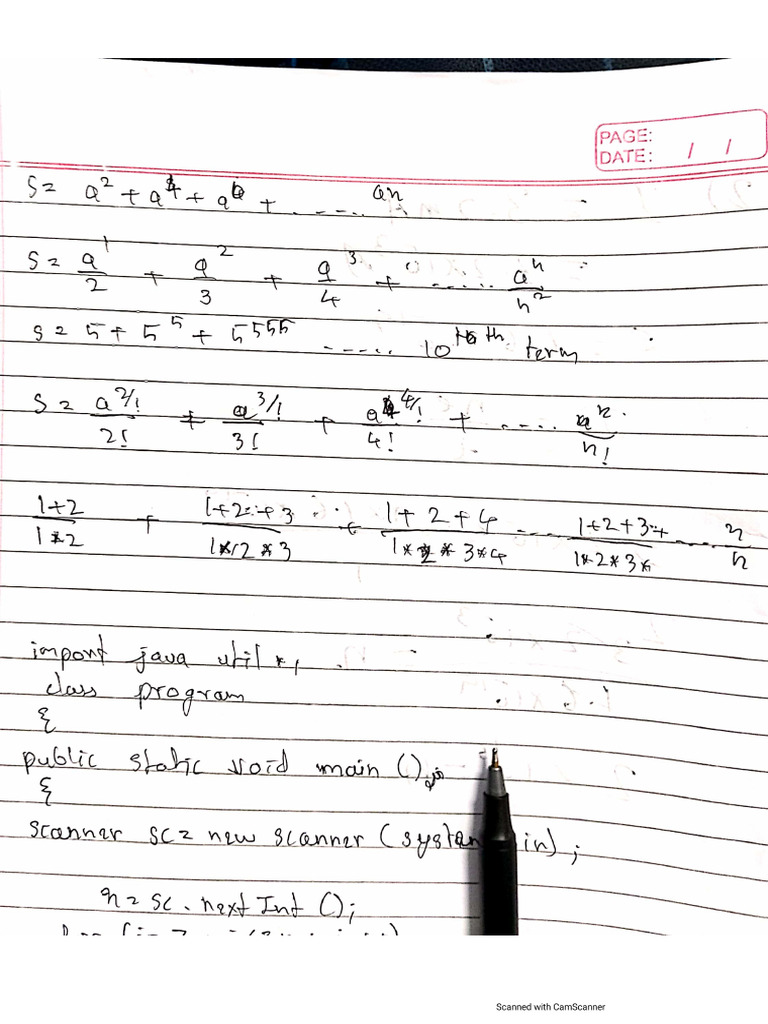 PAGE:
DATE: / /
S = a² + a⁴ + a⁶ + ..... an
S = a¹/2 + a²/3 + a³/4 + ..... aⁿ/n²
s = 5 + 5⁵ + 5⁵⁵⁵ ..... 10th term
S = a^2/!/2! + a^3/!/3! + a^4/!/4! + .... aⁿ/n!
1+2/1*2 + 1+2+3/1*2*3 + 1+2+4/1*2*3*4 ... 1+2+3+ ..... n/1*2*3* n
import java util *,
class program
{
public static void main ()
{
scanner sc = new scanner (system in);
n = sc . next Int ();
Scanned with CamScanner